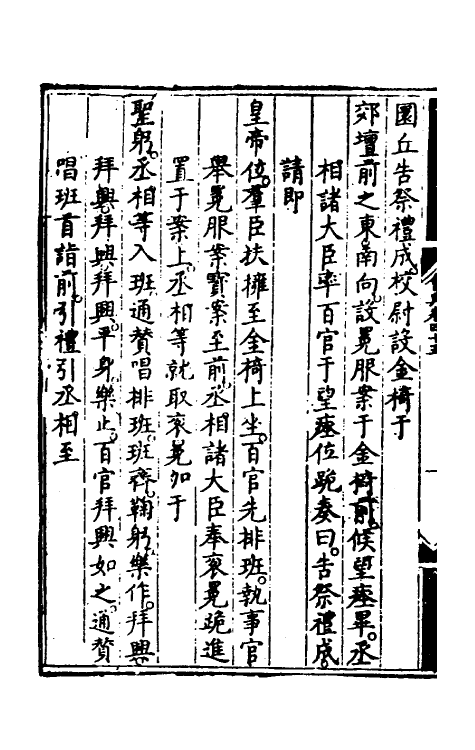 圜丘告祭禮成。校尉設金椅于
郊壇前之東南向。設冕服案于金椅前。候望瘞畢。丞
相諸大臣率百官于望瘞位跪奏曰。告祭禮成。
請即
皇帝位。羣臣扶擁至金椅上坐。百官先排班。執事官
舉冕服案寶案至前。丞相諸大臣奉衮冕跪進
置于案上。丞相等就取衮冕加于
聖躬。丞相等入班。通贊唱排班。班齊。鞠躬。樂作。拜興
拜興。拜興。拜興。平身。樂止。百官拜興如之。通贊
唱班首詣前。引禮引丞相至